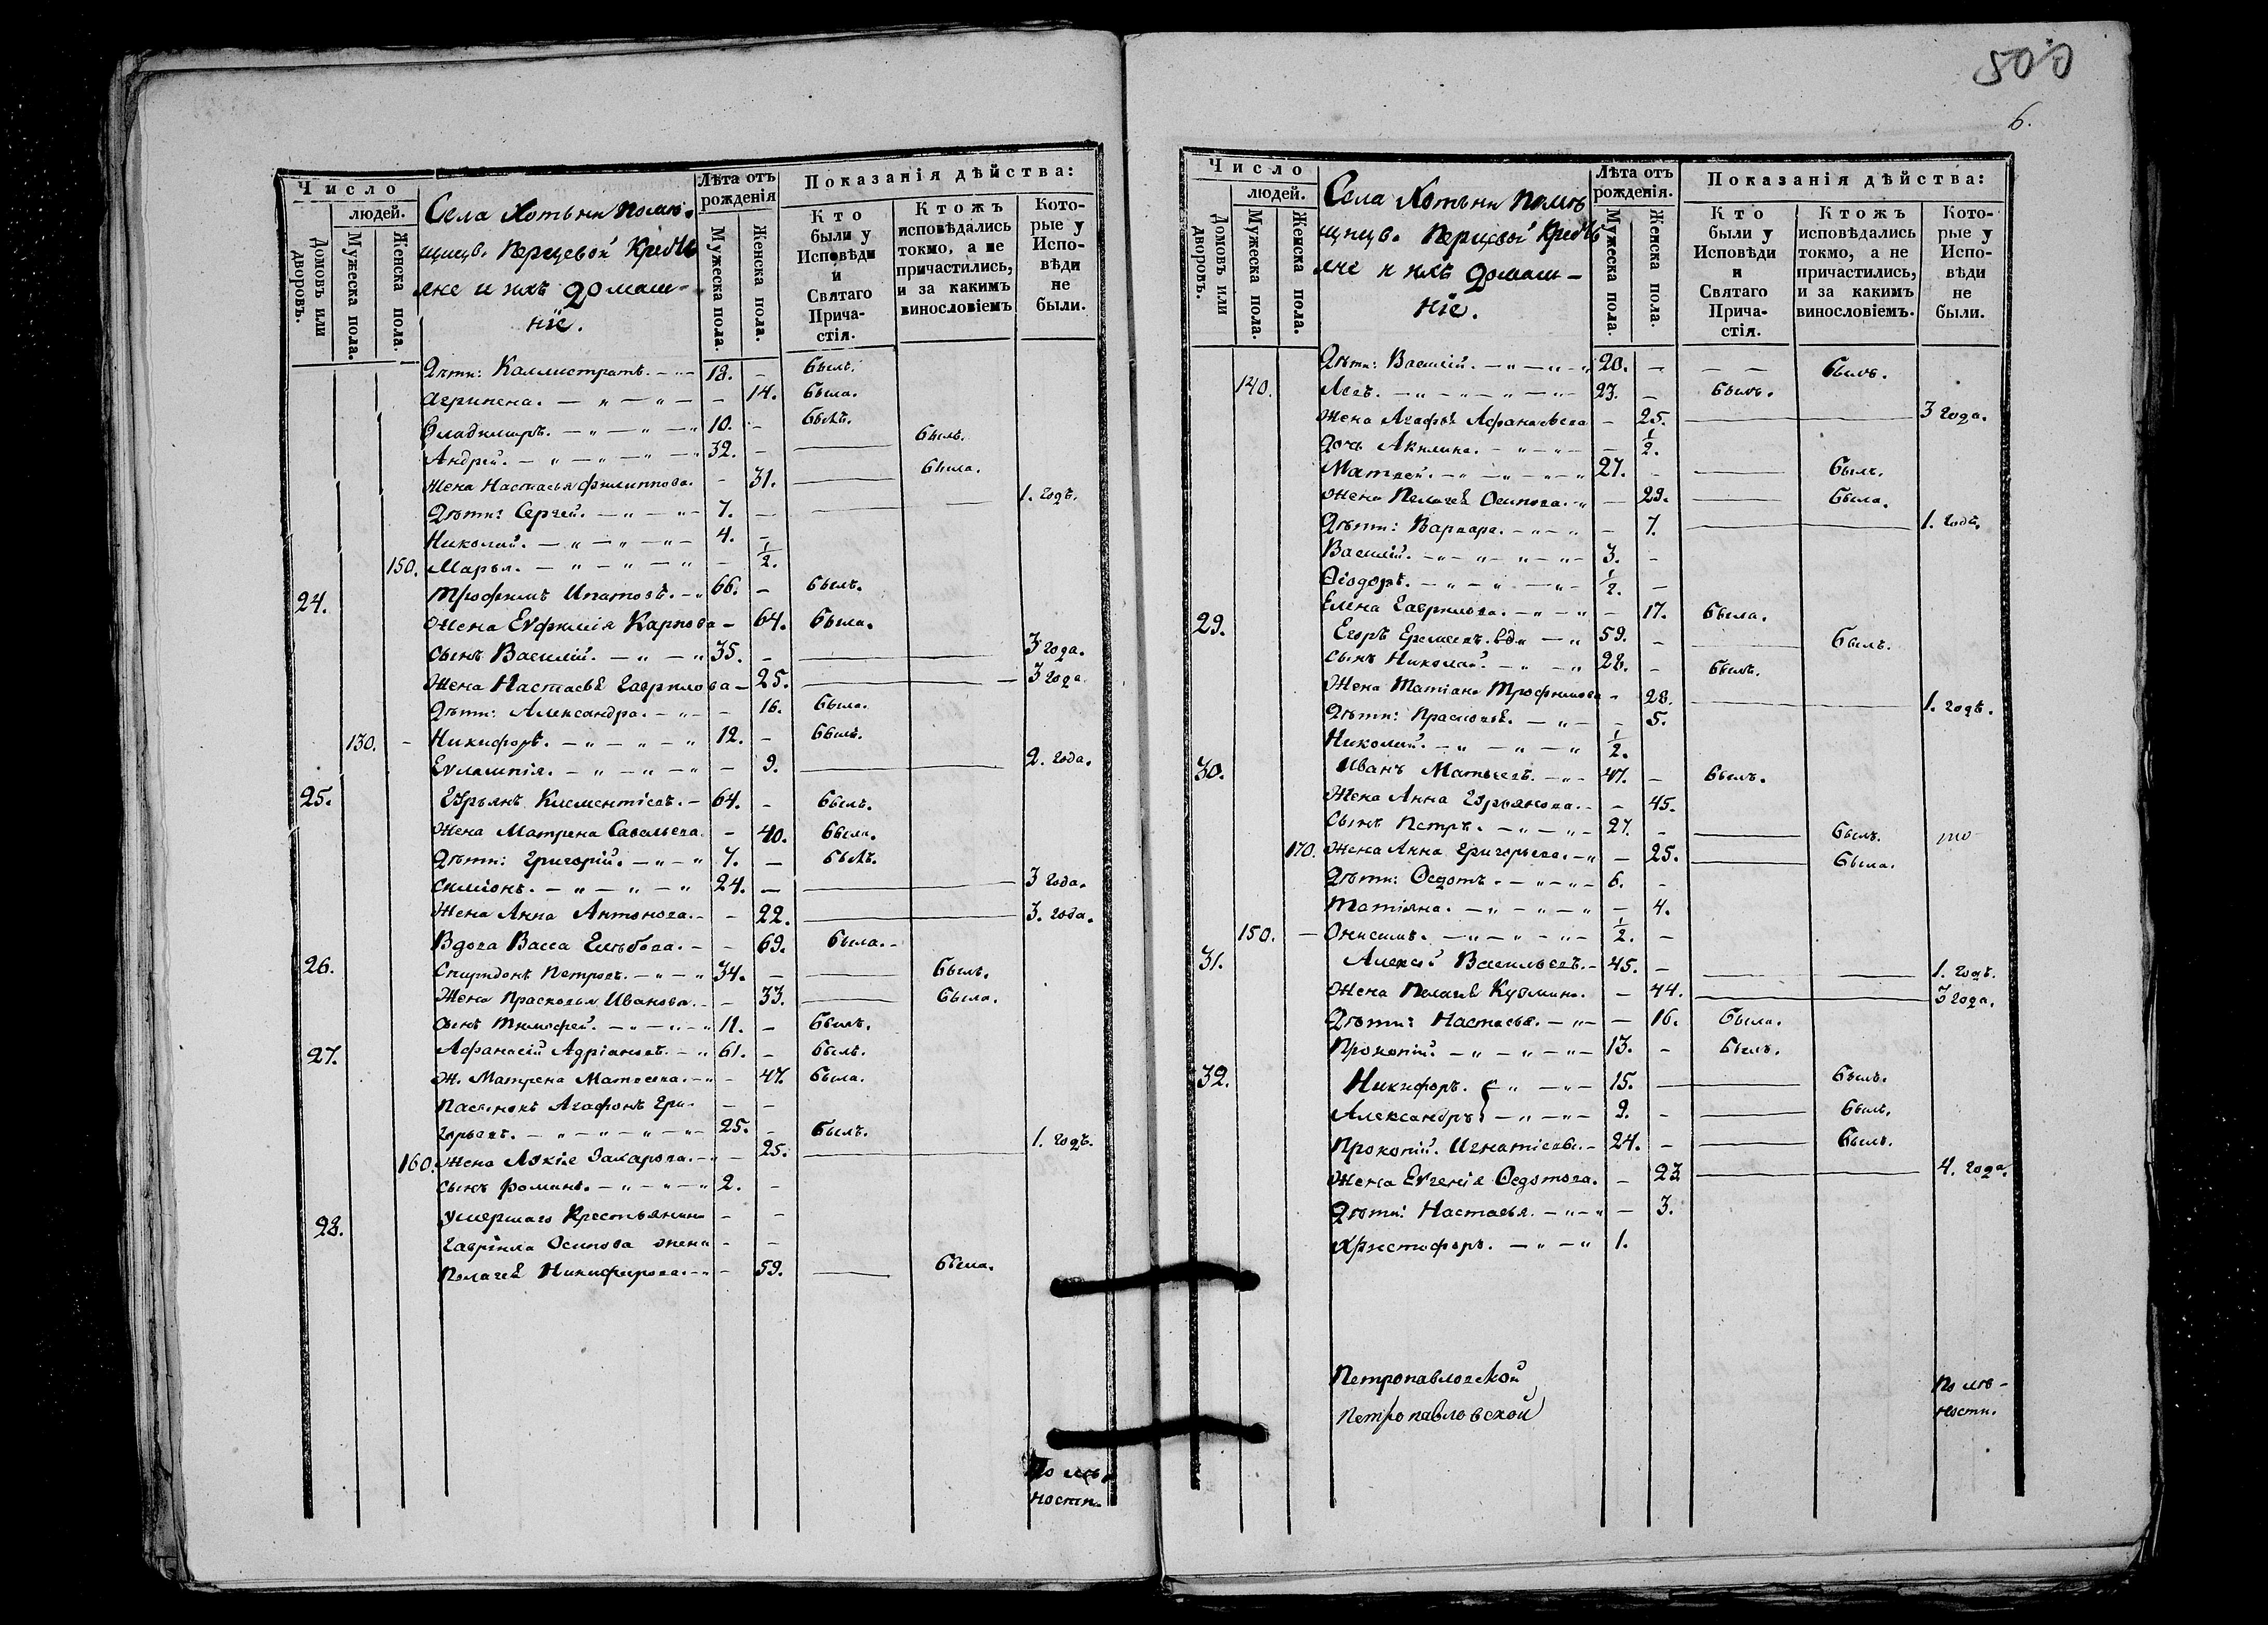 Число
людей.
Домовъ или дворовъ.
Мужеска пола.
Женска пола.
Села Хотьни помѣ-
щицв. Перцевой Кресть
яне и ихъ домаш-
ніе.
Лѣта отъ рожденія
Мужеска пола.
Женска пола.
Показанія дѣйства:
Кто были у Исповѣди и Святаго Прича-стія.
Ктожъ исповѣдались токмо, а не причастились, и за какимъ винословіемъ
Кото-рые у Испо-вѣди не были.
Дѣти: Каллистратъ. – „ – 18. – былъ.
Агрипена. – „ – „ – – 14. была.
Владимиръ. – „ – „ – „ 10. – былъ.
Андрей. – „ – „ – „ – „ 32. – — былъ.
Жена Настасья Филиппова. – 31. — была.
Дѣти: Сергей. – „ – „ – 7. – — — 1. годъ.
Николай. – „ – „ – „ – 4. –
150. Марья. – „ – „ – „ – 1/2.
24. Трофимъ Ипатовъ. – „ 66. – былъ.
Жена Евфимія Карпова – 64. была.
Сынъ Василій. – „ – „ 35. – — — 3 года.
Жена Настасья Гаврилова – 25. — — 3 года
Дѣти: Александра. – „ – – 16. была.
130. – Никифоръ. – „ – „ – „ 12. – былъ.
Евлампія. – „ – „ – „ – – 9. — — 2. года.
25. Гурьянъ Климентіевъ. – 64. – былъ.
Жена Матрена Савельева. – 40. была.
Дѣти: Григорій. – „ – „ 7. – былъ.
Симіонъ. – „ – „ – „ 24. – — — 3 года.
Жена Анна Антонова. – – 22. — — 3. года.
Вдова Васса Глѣбова. – – 69. была. –
26. Спиридонъ Петровъ. – „ – „ 34. – — былъ.
Жена Прасковья Иванова. – – 33. — была.
Сынъ Тимофей. – „ – „ – „ 11. – былъ.
27. Афанасій Адріановъ. – „ 61. – былъ.
Ж. Матрена Матвеева. – „ – 47. была.
Пасынокъ Агафонъ Гри- – –
горьевъ. – „ – „ – „ – „ – 25. – былъ.
160. Жена Лукія Захарова. – „ – 25. — — 1. годъ.
Сынъ Романъ. – „ – „ – „ 2. –
28. Умершаго Крестьянина – –
Гавріила Осипова жена – –
Пелагея Никифорова. – „ – 59. — была.
По лѣ-
ности.
500
6.
Число
людей.
Домовъ или дворовъ.
Мужеска пола.
Женска пола.
Села Хотьни помѣ
щицв. Перцевой Кресть
яне и ихъ домаш-
ніе.
Лѣта отъ рожденія.
Мужеска пола.
Женска пола.
Показанія дѣйства:
Кто были у Исповѣди и Святаго Прича-стія.
Ктожъ исповѣдались токмо, а не причастились, и за какимъ винословіемъ.
Кото-рые у Испо-вѣди не были.
Дѣти: Василій. – „ – „ – „ 20. – — — былъ.
140. Левъ. – „ – „ – „ – „ – 23. – былъ.
Жена Агафья Афанасьева – 25. — — 3 года.
Дочь Акилина. – „ – „ – – 1/2.
Матвей. – „ – „ – „ – „ 27. – — былъ.
Жена Пелагея Осипова. – „ – 29. — была.
Дѣти: Варвара. – „ – „ – 7. — — 1. годъ.
Василій. – „ – „ – „ – „ 3. –
Ѳіодоръ. – „ – „ – „ – 1/2. –
Елена Гаврилова. – „ – „ – 17. была.
29. Егоръ Еремеевъ. вд. – „ 59. – — былъ.
Сынъ Николай. – „ – „ 28. – былъ.
Жена Татіана Трофимова – 28. — — 1. годъ.
Дѣти: Прасковья. – „ – – 5.
Николай. – „ – „ – „ 1/2.
30. Иванъ Матвеевъ. – „ – 47. – былъ.
Жена Анна Гурьянова. – – 45.
Сынъ Петръ. – „ – „ – 27. – — былъ.
170. Жена Анна Григорьева. – „ – 25. — была.
Дѣти: Ѳедотъ. – „ – „ – 6. –
Татіяна. – „ – „ – „ – 4.
150. – Онисимъ. – „ – „ – „ – 1/2. –
31. Алексѣй Васильевъ. – 45. – — — 1. годъ.
Жена Пелагея Кузмина. – 44. — — 3 года.
Дѣти: Настасья. – „ – – 16. была.
Прокопій. – „ – „ – „ – 13. – былъ.
32. Никифоръ. { „ – „ – 15. – — былъ.
Александръ – „ – „ – 9. – — былъ.
Прокопій Игнатіевъ. – 24. – — былъ.
Жена Евгенія Ѳедотова. – 23 — — 4. года.
Дѣти: Настасья. – „ – „ – 3.
Христофоръ. – „ – „ 1.
Петропавловской
Петропавловской
По лѣ-
ности.